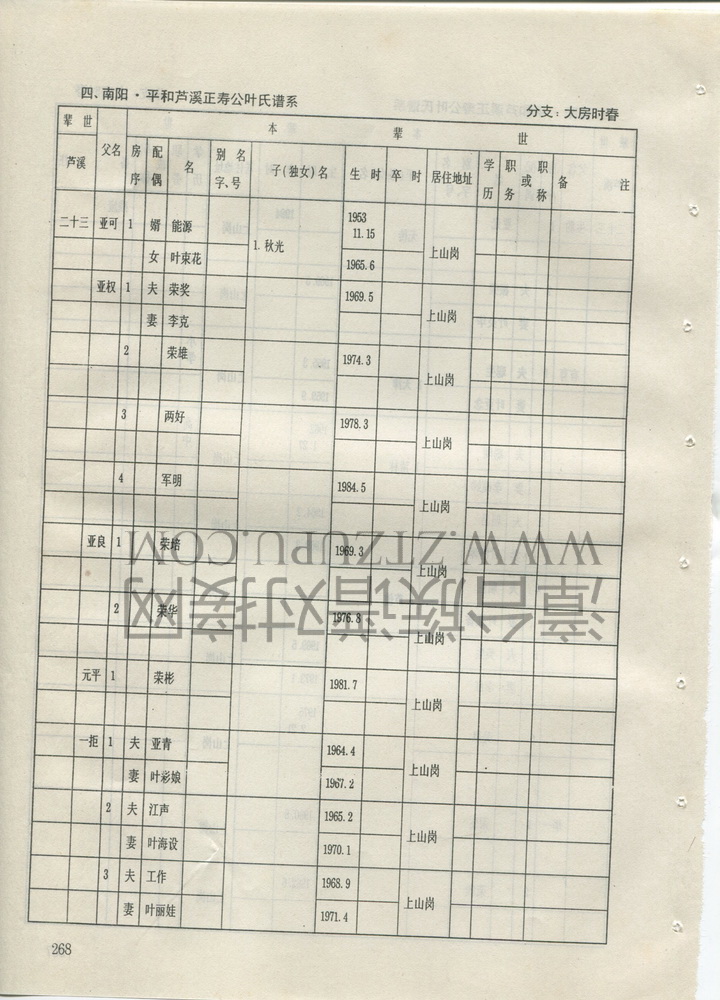 四、南阳·平和芦溪正寿公叶氏谱系
分支：大房时春
辈世 本辈世
芦溪 父名 房序 配偶 名 别名字、号 子(独女)名 生时 卒时 居住地址 学历 职务或职称 备注
二十三 亚可 1 婿 能源 1.秋光 1953 11.15 上山岗
女 叶束花 1965.6
亚权 1 夫 荣奖 1969.5 上山岗
妻 李克
2 荣雄 1974.3 上山岗
3 两好 1978.3 上山岗
4 军明 1984.5 上山岗
亚良 1 荣培 1969.3 上山岗
2 荣华 1976.8 上山岗
元平 1 荣彬 1981.7 上山岗
一拒 1 夫 亚青 1964.4 上山岗
妻 叶彩娘 1967.2
2 夫 江声 1965.2 上山岗
妻 叶海设 1970.1
3 夫 工作 1968.9 上山岗
妻 叶丽娃 1971.4
268
WWW.ZTZUPU.COM
漳台族谱对接网